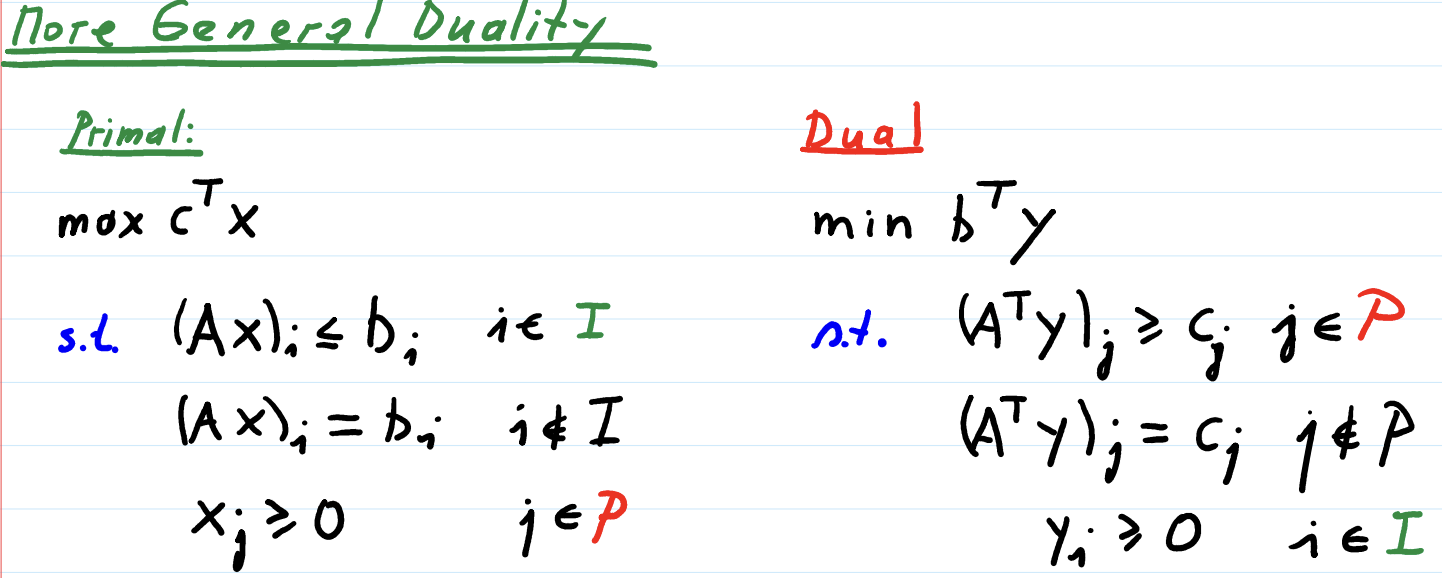 More General Duality
Primal:
max cᵀx
s.t. (Ax)ᵢ ≤ bᵢ i ∈ I
(Ax)ᵢ = bᵢ i ∉ I
xⱼ ≥ 0 j ∈ P
Dual
min bᵀy
s.t. (Aᵀy)ⱼ ≥ cⱼ j ∈ P
(Aᵀy)ⱼ = cⱼ j ∉ P
yᵢ ≥ 0 i ∈ I